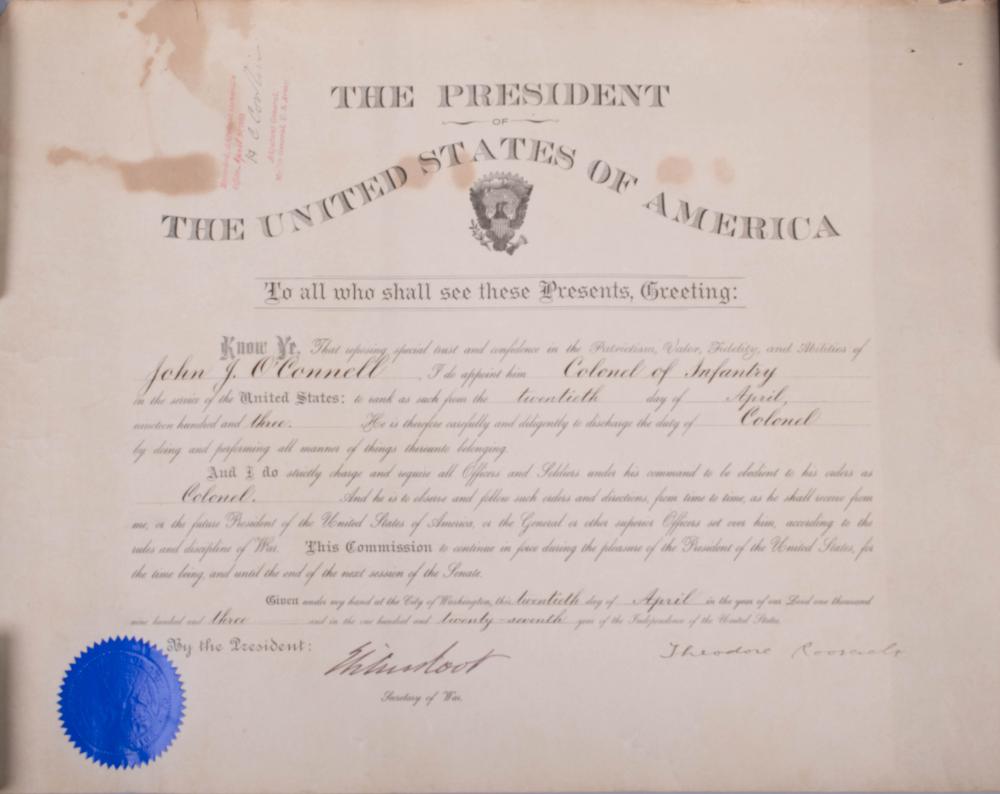 THE PRESIDENT
OF
THE UNITED STATES OF AMERICA
To all who shall see these Presents, Greeting:
Know Ye, That reposing special trust and confidence in the Patriotism, Valor, Fidelity, and Abilities of
John J. O'Connell, I do appoint him Colonel of Infantry
in the service of the United States: to rank as such from the twentieth day of April,
nineteen hundred and three. He is therefore carefully and diligently to discharge the duty of Colonel
by doing and performing all manner of things thereunto belonging.
And I do strictly charge and require all Officers and Soldiers under his command to be obedient to his orders as
Colonel. And he is to observe and follow such orders and directions, from time to time, as he shall receive from
me, or the future President of the United States of America, or the General or other superior Officers set over him, according to the
rules and discipline of War. This Commission to continue in force during the pleasure of the President of the United States, for
the time being, and until the end of the next session of the Senate.
Given under my hand at the City of Washington, this twentieth day of April in the year of our Lord one thousand
nine hundred and three and in the one hundred and twenty-seventh year of the Independence of the United States.
By the President:
Elihu Root
Theodore Roosevelt
Secretary of War.